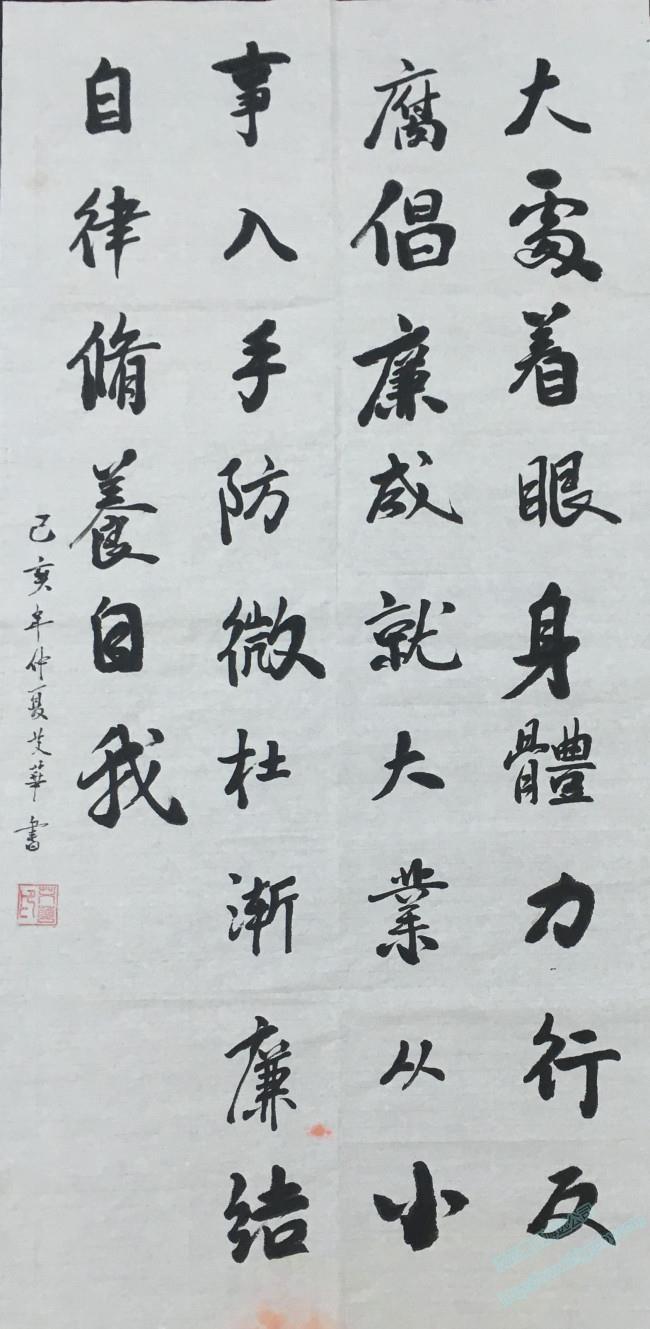 大處着眼身體力行反
腐倡廉成就大業从小
事入手防微杜漸廉结
自律脩養自我
己亥年仲夏艾華書